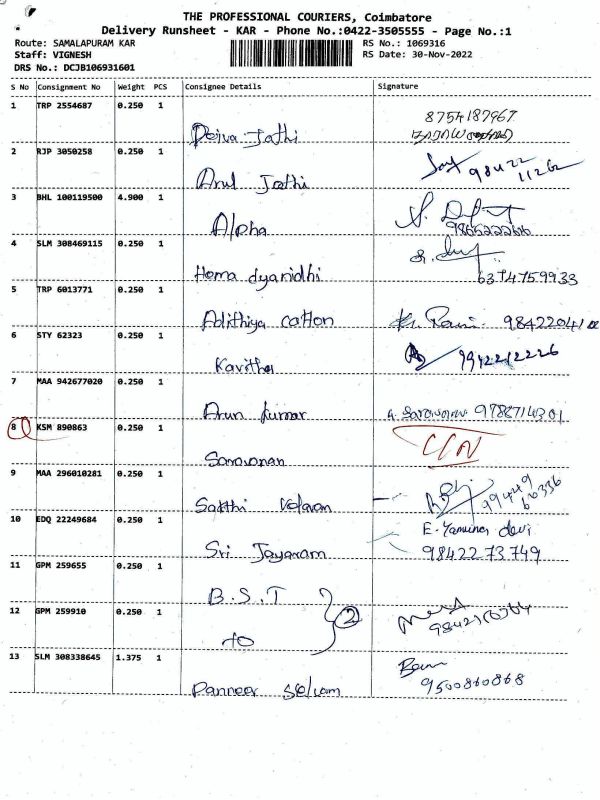 THE PROFESSIONAL COURIERS, Coimbatore
Delivery Runsheet - KAR - Phone No.:0422-3505555 - Page No.:1
Route: SAMALAPURAM KAR RS No.: 1069316
Staff: VIGNESH RS Date: 30-Nov-2022
DRS No.: DCJB106931601
S No Consignment No Weight PCS Consignee Details Signature
1 TRP 2554687 0.250 1
8754187967
Deiva Jothi
2 RJP 3050258 0.250 1
98422
11262
Arul Jothi
3 BHL 100119500 4.900 1
Alpha
4 SLM 308469115 0.250 1
Hema dyanidhi 6374759933
5 TRP 6013771 0.250 1
Adithiya cotton
6 STY 62323 0.250 1
9942212226
Kavitha
7 MAA 942677020 0.250 1
Arun kumar
8 KSM 890863 0.250 1
Saravanan
9 MAA 296010281 0.250 1
99449
66336
Sakthi Velavan
10 EDQ 22249684 0.250 1
E. Yamuna devi
Sri Jayaram 98422 73749
11 GPM 259655 0.250 1
B.S.T
2
12 GPM 259910 0.250 1
to
13 SLM 308338645 1.375 1
9500860868
Panneer Selvam